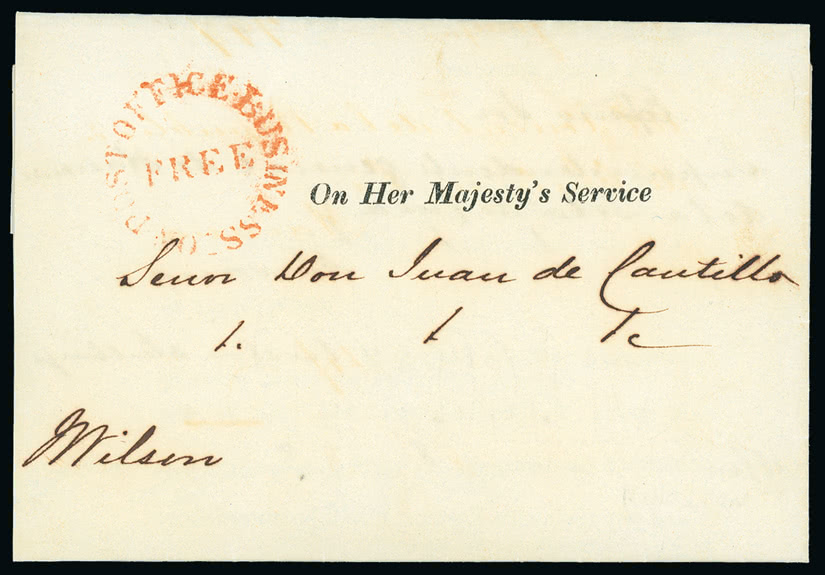 POST OFFICE BUSINESS
FREE
On Her Majesty's Service
Senor Don Juan de Cantillo
Wilson